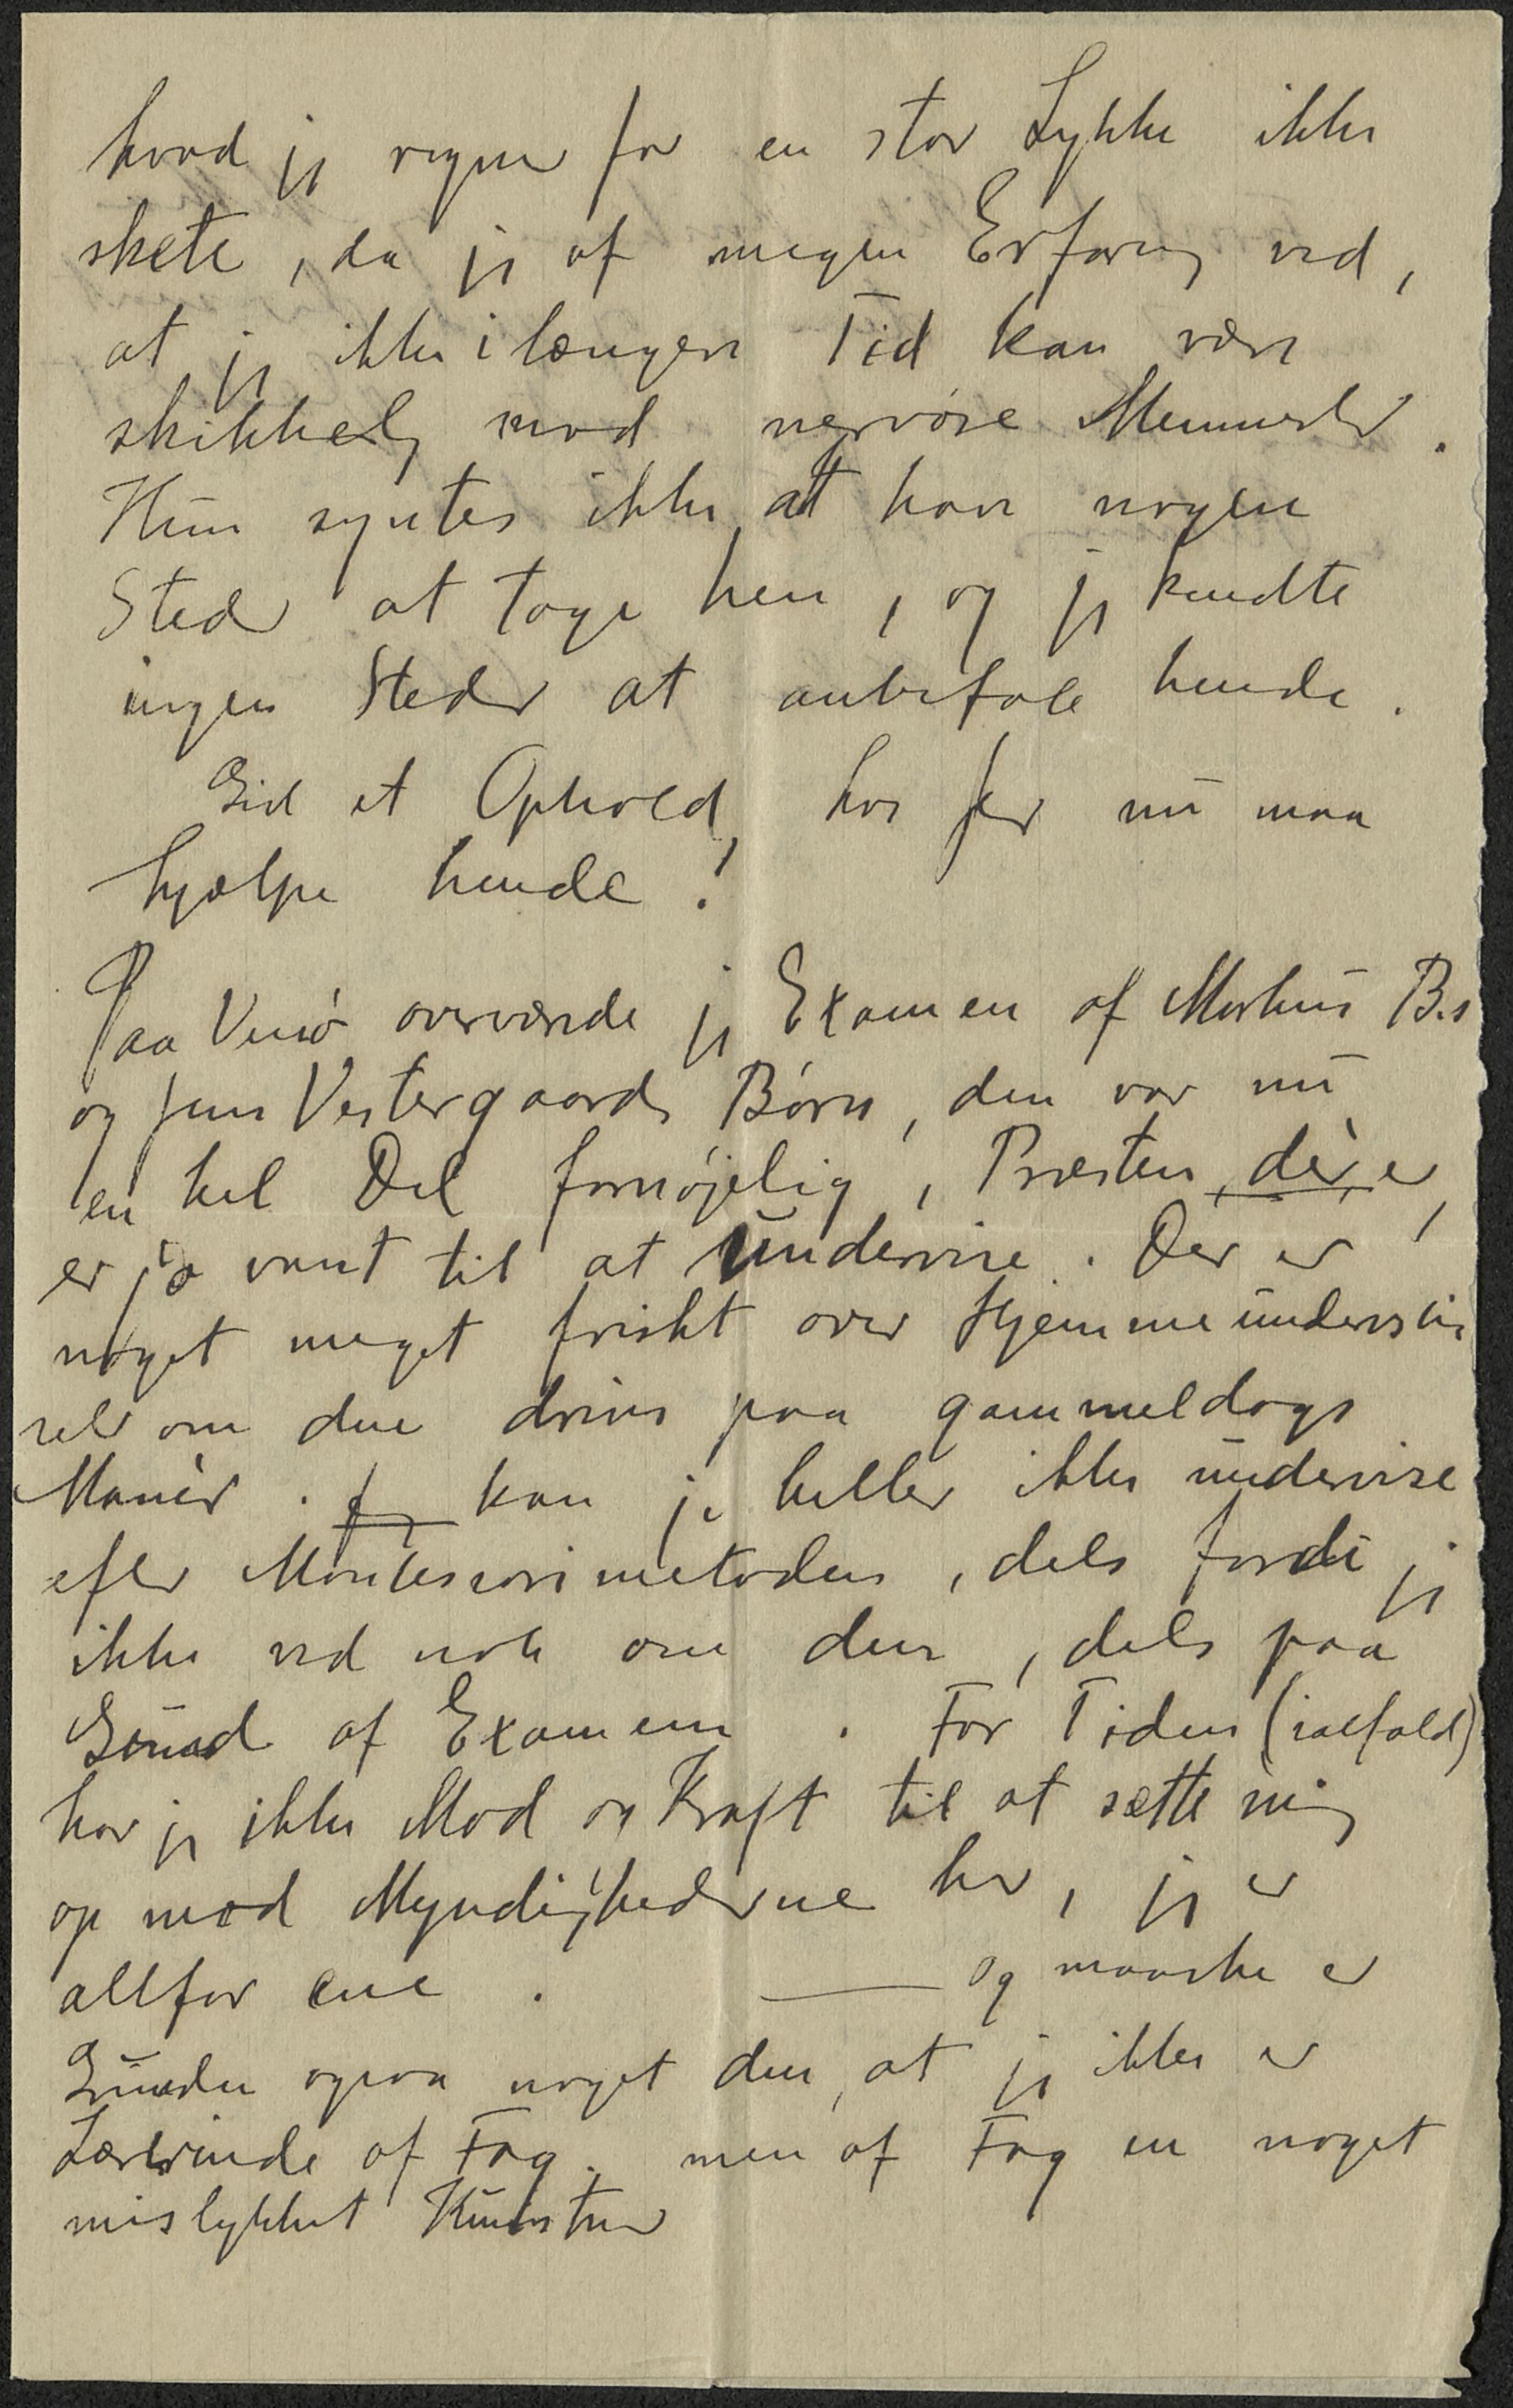 hvad jeg regner for en stor Lykke ikke
skete, da jeg af megen Erfaring ved,
at jeg ikke i længere Tid kan være
skikkelig mod nervøse Mennesker.
Hun syntes ikke at have nogen
Steder at tage hen, og jeg kendte
ingen Steder at anbefale hende.
Gid et Ophold hos Jer nu maa
hjælpe hende!
Paa Venø overværede jeg Examen af Morhus B.s
og Jens Vestergaards Børn, den var nu
en hel Del fornøjelig, Præsten der er
er jo vant til at undervise. Der er
noget meget friskt over Hjemmeundervis
selv om den drives paa gammeldags
Manér. Jeg kan jo heller ikke undervise
efter Montessorimetoden, dels fordi jeg
ikke ved nok om den, dels paa
Grund af Examenen. For Tiden (ialfald)
har jeg ikke Mod og Kraft til at sætte mig
op mod Myndighederne her, jeg er
altfor ene. — og maaske er
Grunden ogsaa noget den, at jeg ikke er
Lærerinde af Fag, men af Fag en noget
mislykket Kunstner